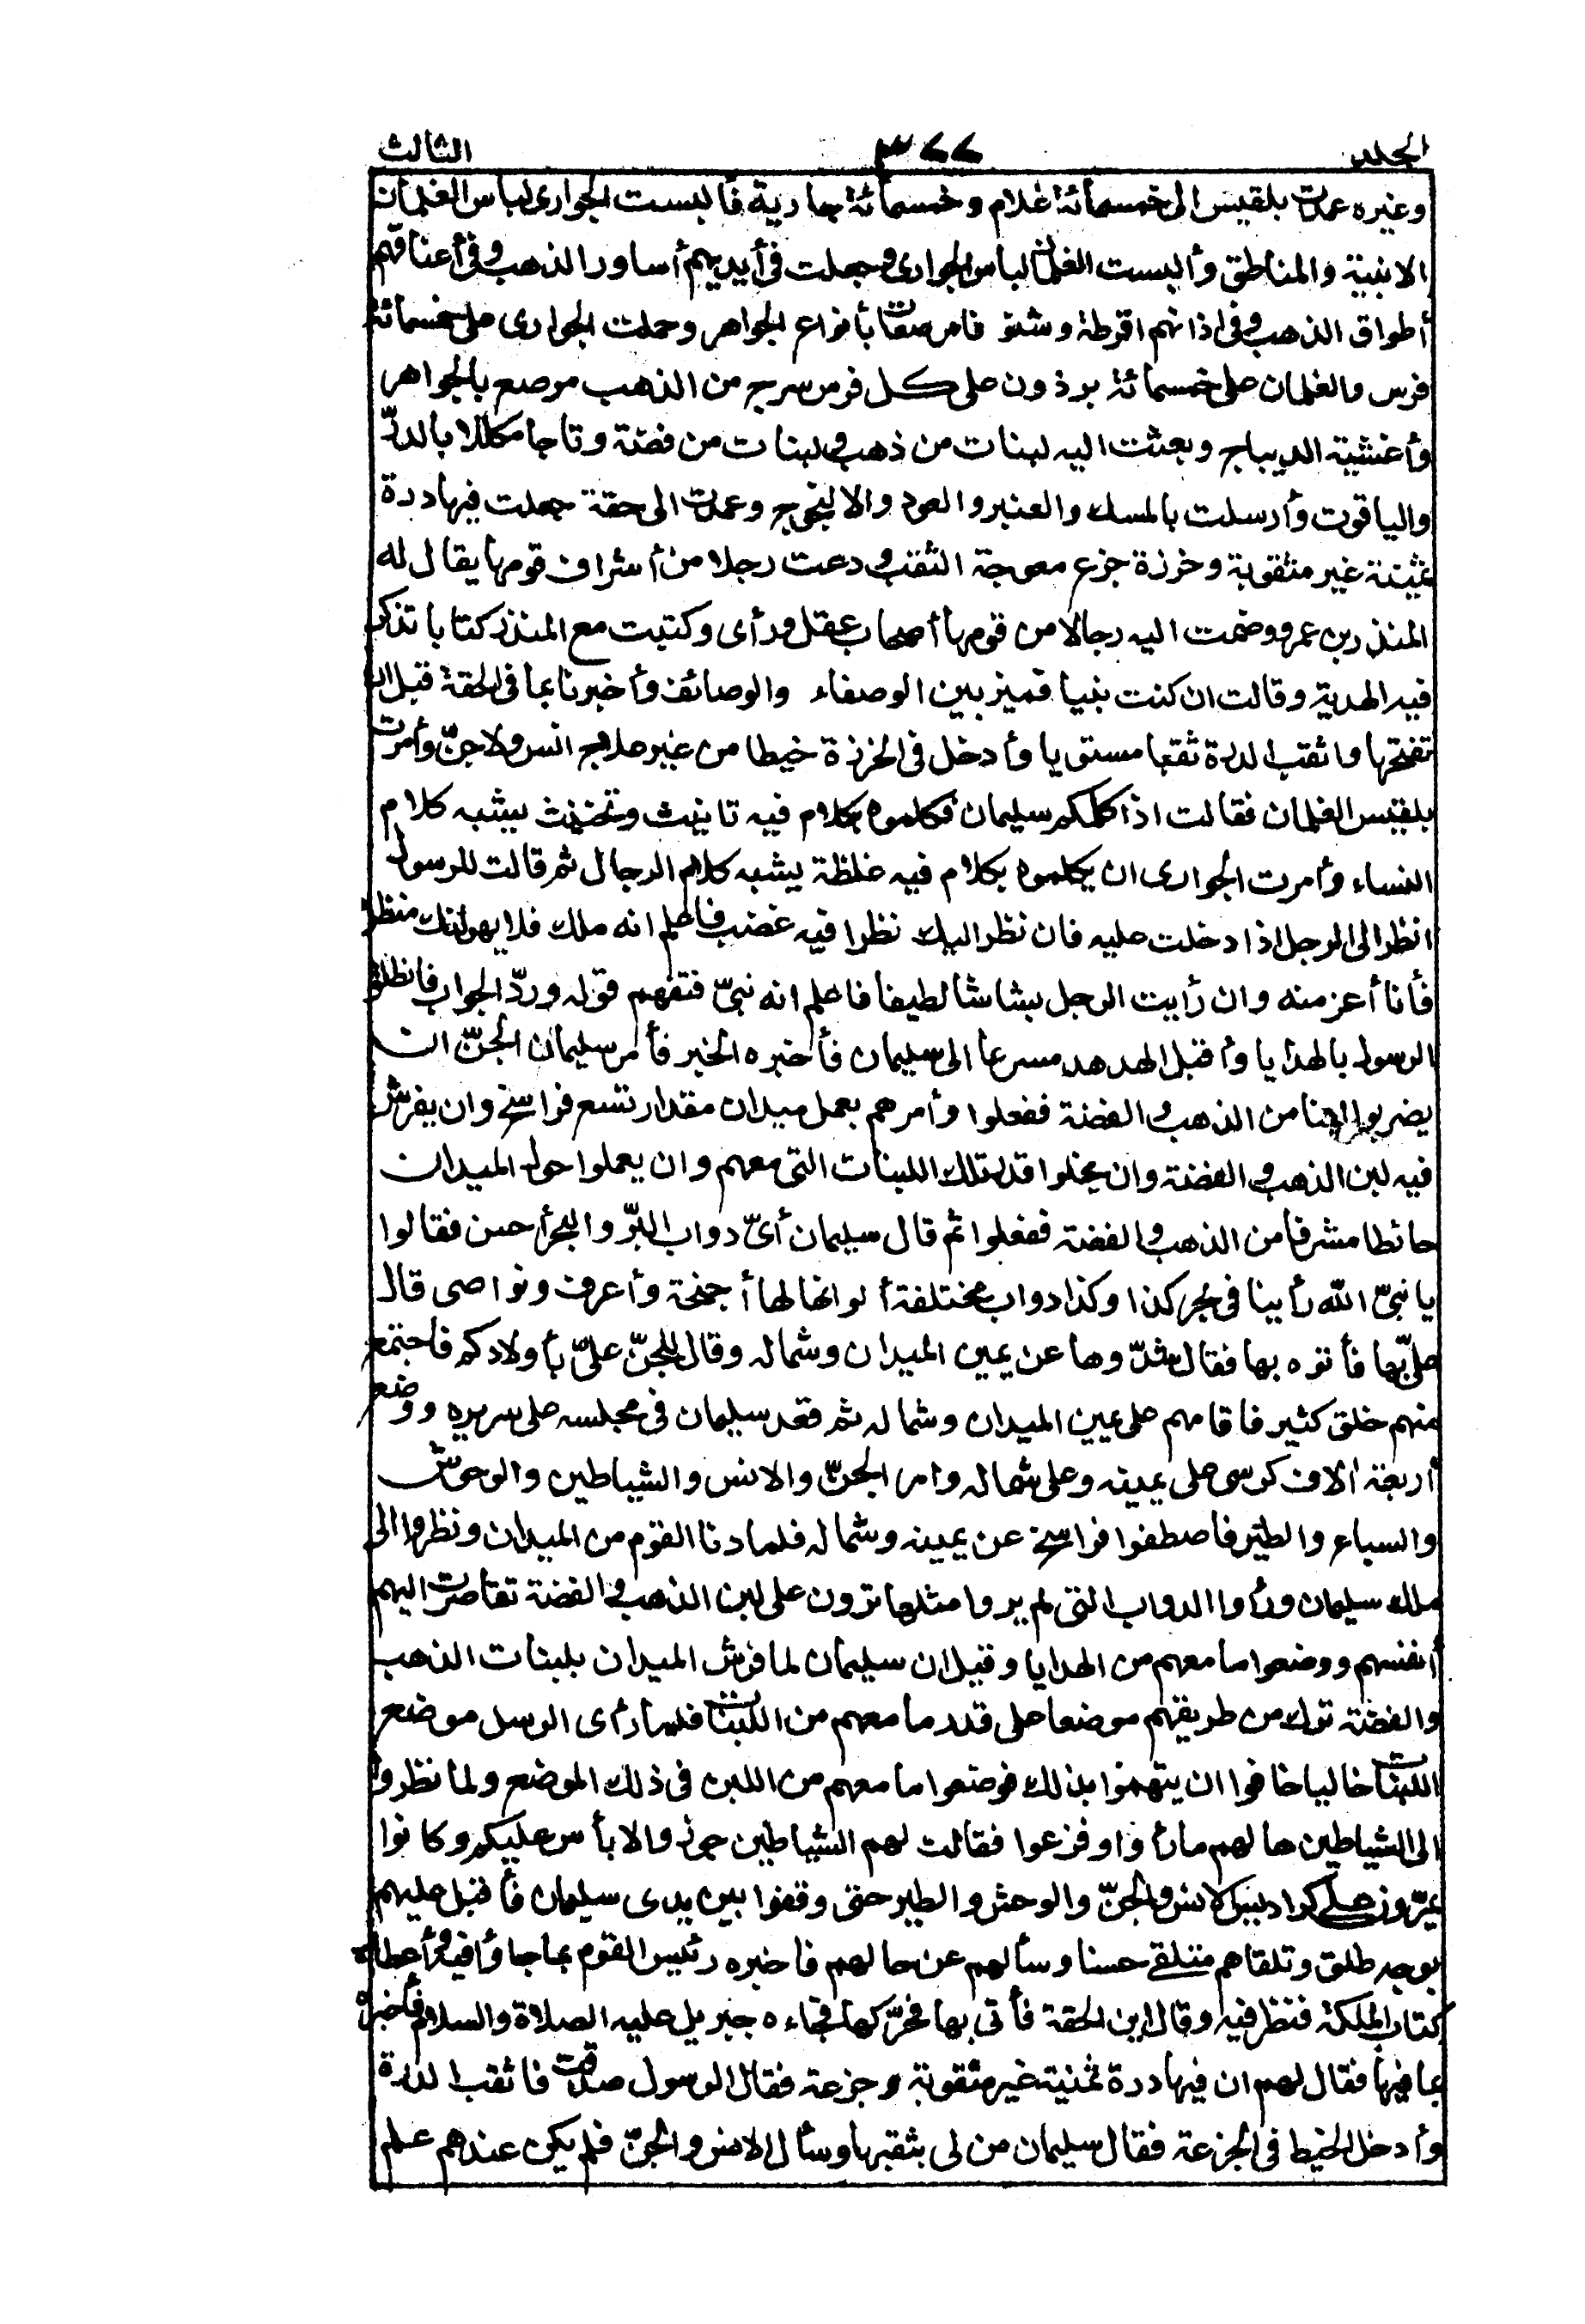 المجلد ٣٧٧ الثالث
وغيره عمدت بلقيس الى خمسمائة غلام وخمسمائة جارية فألبست الجوارى لباس الغلمان
الاقبية والمناطق وألبست الغلمان لباس الجوارى وجعلت فى أيديهم أساور الذهب وفى أعناقهم
أطواق الذهب وفى اذانهم اقرطة وشنوفا مرصعات بأنواع الجواهر وحملت الجوارى على خمسمائة
فرس والغلمان على خمسمائة برذون على كل فرس سرج من الذهب مرصع بالجواهر
وأغشية الديباج وبعثت اليه لبنات من ذهب ولبنات من فضة وتاجا مكللا بالدرّ
والياقوت وأرسلت بالمسك والعنبر والعود والالنجوج وعمدت الى حقة جعلت فيها درة
ثمينة غير مثقوبة وخرزة جزع معوجة الثقب ودعت رجلا من أشراف قومها يقال له
المنذر بن عمرو وضمت اليه رجالا من قومها أصحاب عقل ورأى وكتبت مع المنذر كتابا تذكر
فيه الهدية وقالت ان كنت نبيا فميز بين الوصفاء والوصائف وأخبرنا بما فى الحقة قبل ان
تفتحها واثقب الدرة ثقبا مستويا وأدخل فى الخرزة خيطا من غير علاج انس ولا جنّ وأمرت
بلقيس الغلمان فقالت اذا كلمكم سليمان فكلموه بكلام فيه تانيث وتخنيث يشبه كلام
النساء وأمرت الجوارى ان يكلموه بكلام فيه غلظة يشبه كلام الرجال ثم قالت للرسول
انظر الى الرجل اذا دخلت عليه فان نظر اليك نظرا فيه غضب فاعلم انه ملك فلا يهولنك منظره
فأنا أعز منه وان رأيت الرجل بشاشا لطيفا فاعلم انه نبىّ فتفهم قوله وردّ الجواب فانطلق
الرسول بالهدايا وأقبل الهدهد مسرعا الى سليمان فأخبره الخبر فأمر سليمان الجنّ ان
يضربوا لبنا من الذهب والفضة ففعلوا وأمرهم بعمل ميدان مقدار تسع فراسخ وان يفرش
فيه لبن الذهب والفضة وان يخلوا قدر تلك اللبنات التى معهم وان يعملوا حول الميدان
حائطا مشرفا من الذهب والفضة ففعلوا ثم قال سليمان أىّ دواب البرّ والبحر أحسن فقالوا
يا نبىّ الله رأينا فى بحر كذا وكذا دواب مختلفة ألوانها لها أجنحة وأعرف ونواصى قال
علىّ بها فأتوه بها فقال شدّوها عن يمين الميدان وشماله وقال للجنّ علىّ بأولادكم فاجتمع
منهم خلق كثير فاقامهم على يمين الميدان وشماله ثم قعد سليمان فى مجلسه على سريره ووضع
أربعة آلاف كرسى على يمينه وعلى شماله وامر الجنّ والانس والشياطين والوحش
والسباع والطير فاصطفوا فراسخ عن يمينه وشماله فلما دنا القوم من الميدان ونظروا الى
ملك سليمان ورأوا الدواب التى لم يروا مثلها تروث على لبن الذهب والفضة تقاصرت اليهم
أنفسهم ووضعوا ما معهم من الهدايا وقيل ان سليمان لما فرش الميدان بلبنات الذهب
والفضة ترك من طريقهم موضعا على قدر ما معهم من اللبنات فلما رأى الرسل موضع
اللبنات خاليا خافوا ان يتهموا بذلك فوضعوا ما معهم من اللبن فى ذلك الموضع ولما نظروا
الى الشياطين هالهم ما رأوا وفزعوا فقالت لهم الشياطين جوزوا لا بأس عليكم وكانوا
يمرّون على كراديس الانس والجنّ والوحش والطير حتى وقفوا بين يدى سليمان فأقبل عليهم
بوجه طلق وتلقاهم متلقى حسنا وسألهم عن حالهم فاخبره رئيس القوم بما جاؤا فيه وأعطاه
كتاب الملكة فنظر فيه وقال اين الحقة فأتى بها فحرّكها فجاءه جبريل عليه الصلاة والسلام فأخبره
بما فيها فقال لهم ان فيها درة ثمينة غير مثقوبة وجزعة فقال الرسول صدقت فاثقب الدرة
وأدخل الخيط فى الجزعة فقال سليمان من لى بثقبها وسأل الانس والجنّ فلم يكن عندهم علم